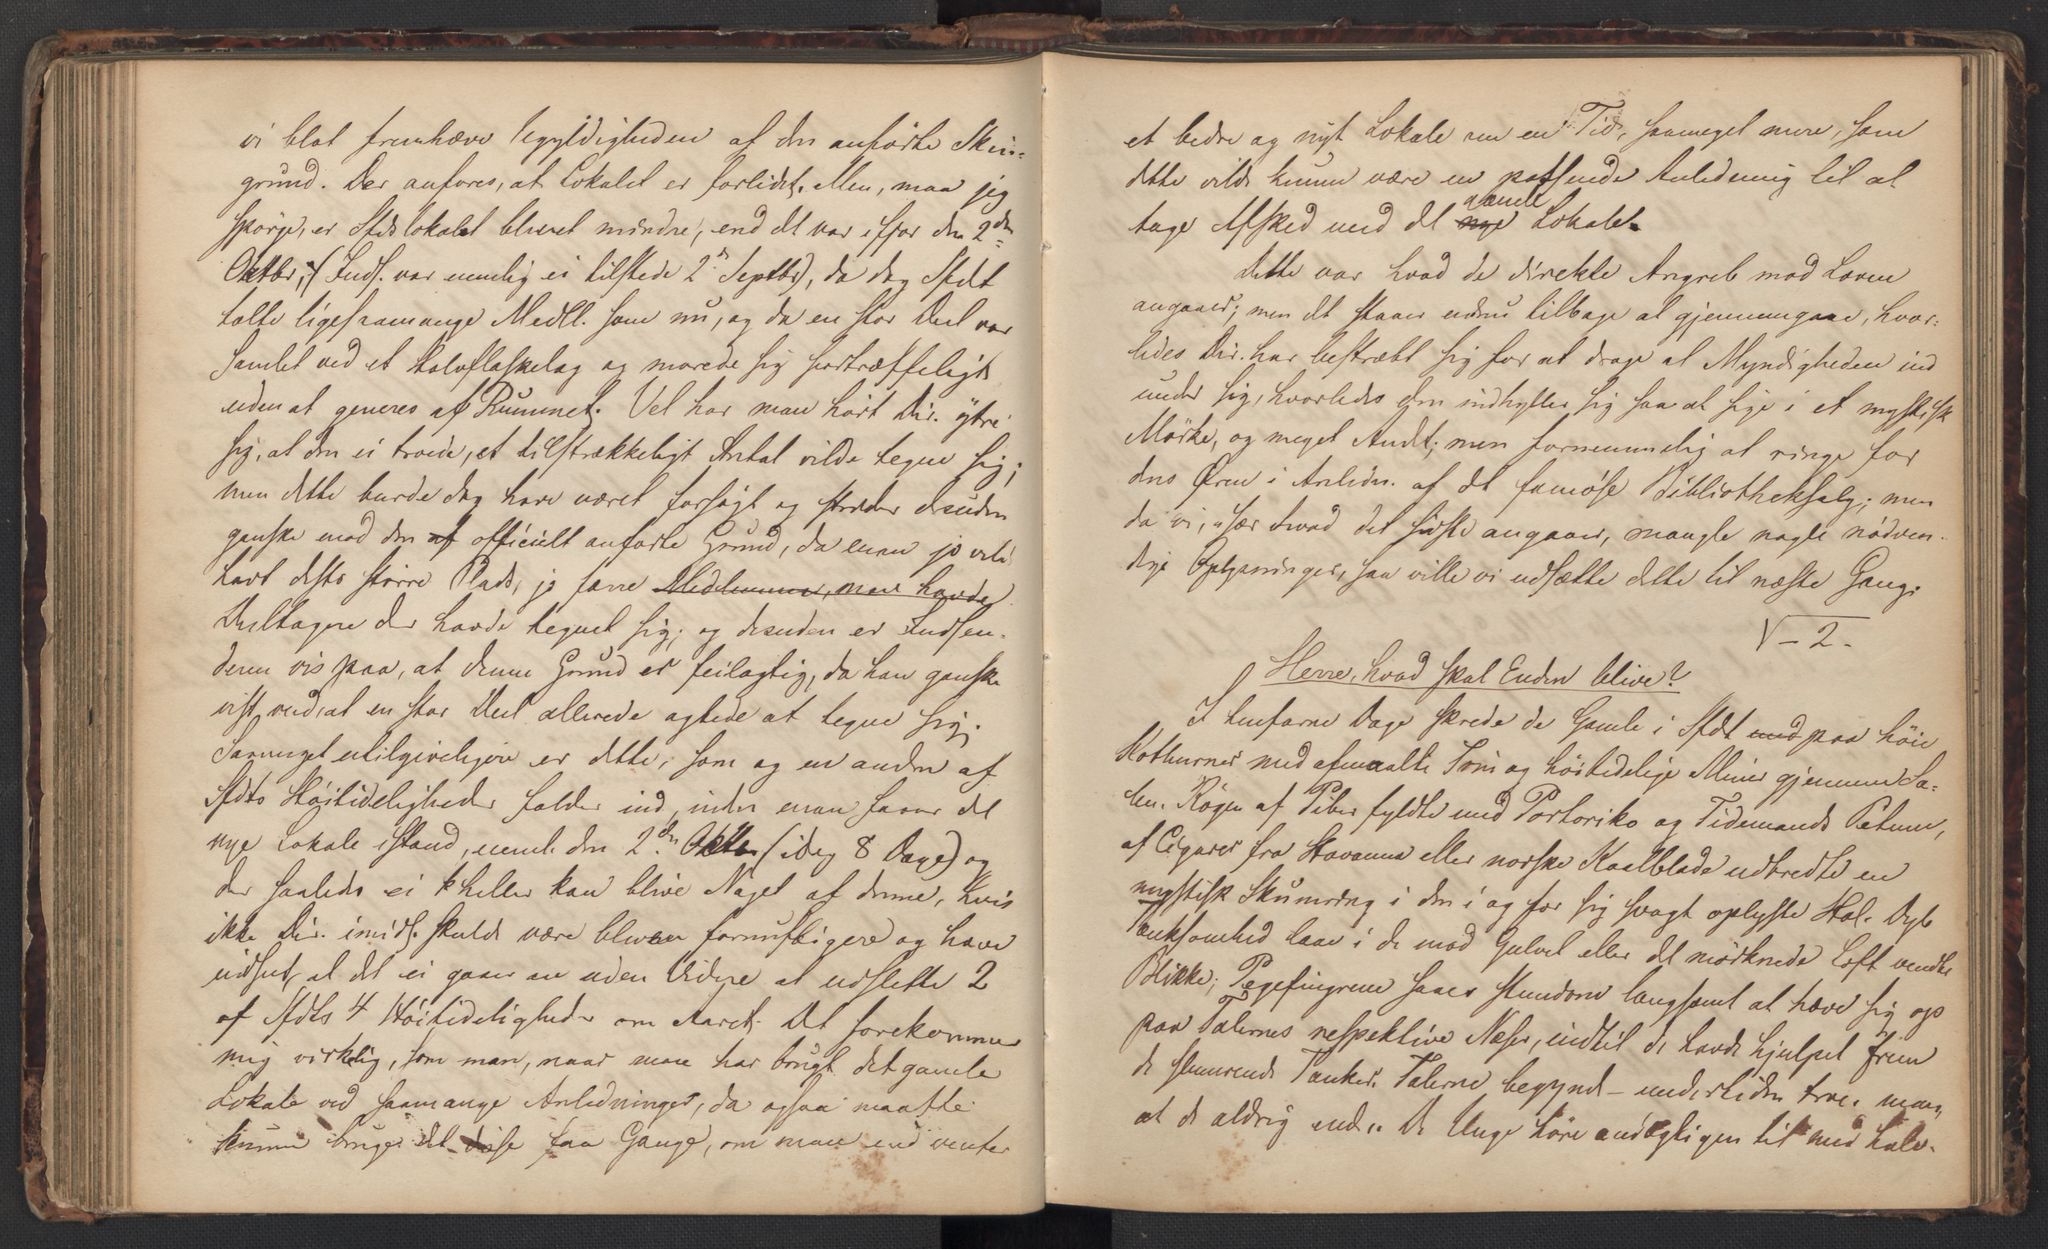 vi blot fremhæve ugyldigheden af den anførte Skin-
grund. Der anføres, at Lokalet er forlidet. Men, maa jeg
spørge, er Sfdslokalet blevet mindre, end det var ifjor den 2den
Oktbr, (Inds. var nemlig ei tilstede 2den Septbr), da dog Sfdt
talte ligesaamange Medll. som nu, og da en stor Deel var
samlet ved et Halvflaskelag og morede sig fortræffeligt
uden at generes af Rummet. Vel har man hørt Dir. ytre
sig, at den ei troede, at tilstrækkeligt Antal vilde tegne sig;
men dette burde dog have været forsøgt og strider desuden
ganske mod den af officielt anførte Grund, da man jo vilde
havt desto større Plads, jo færre Medlemmer, man havde
Deltagere der havde tegnet sig; og desuden er Indsen-
deren vis paa, at denne Grund er feilagtig, da han ganske
vist veed, at en stor Deel allerede agtede at tegne sig.
Saameget utilgiveligere er dette, som og en anden af
Sfdts Høitideligheder falder ind, inden man faaer det
nye Lokale istand, neml. den 2den Oktbr (idag 8 Dage) og
der saaledes ei heller kan blive Noget af denne, hvis
ikke Dir. imidl. skulde være bleven fornuftigere og have
indseet, at det ei gaaer an uden Videre at udslette 2
af Sfdts 4 Høitideligheder om Aaret. Det forekommer
mig virkelig, som man, naar man har brugt det gamle
Lokale ved saamange Anledninger, da ogsaa maatte
kunne bruge det disse faa Gange, om man end venter
et bedre og nyt Lokale om en Tid, saameget mere, som
dette vilde kunne være en passende Anledning til at
tage Afsked med det nye gamle Lokale.
Dette var hvad de direkte Angreb mod Loven
angaaer; men det staaer endnu tilbage at gjennemgaae, hvor-
ledes Dir. har bestræbt sig for at drage al Myndigheden ind
under sig, hvorledes den indhyller sig saa at sige i et mystisk
Mørke, og meget Andet; men fornemmelig at ringe for
dens Øren i Anledn. af det famøse Bibliotheksalg; men
da vi, især hvad det sidste angaaer, mangle nogle nødven-
dige Oplysninger, saa ville vi udsætte dette til næste Gang.
V – 2 –
Herre, hvad skal Enden blive?
I henfarne Dage skrede de Gamle i Sfdt med paa høie
Kothurner med afmaalte Trin og høitidelige Miner gjennem Sa-
len. Røgen af Piber fyldte med Portoriko og Tidemands Petum,
af Cigarer fra Havanna eller norske Kaalblade udbredte en
mystisk Skumring i den i og for sig svagt oplyste Hal. Dyb
Tænksomhed laae i de mod Gulvet eller det mørknede Loft vendte
Blikke; Pegefingrene saaes stundom langsomt at hæve sig op
paa Talernes respektive Næser, indtil de havde hjulpet frem
de slumrende Tanker. Talerne begyndte – undertiden troe man,
at de aldrig ende. De Unge høre andægtigen til med halv-